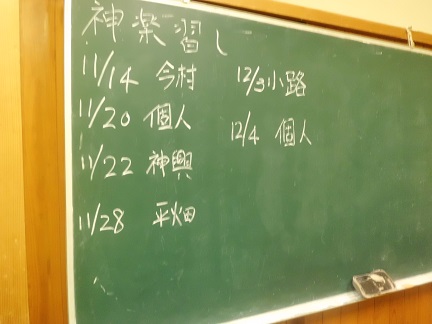 神楽習し
11/14 今村
11/20 個人
11/22 神興
11/28 平畑
12/3 小路
12/4 個人